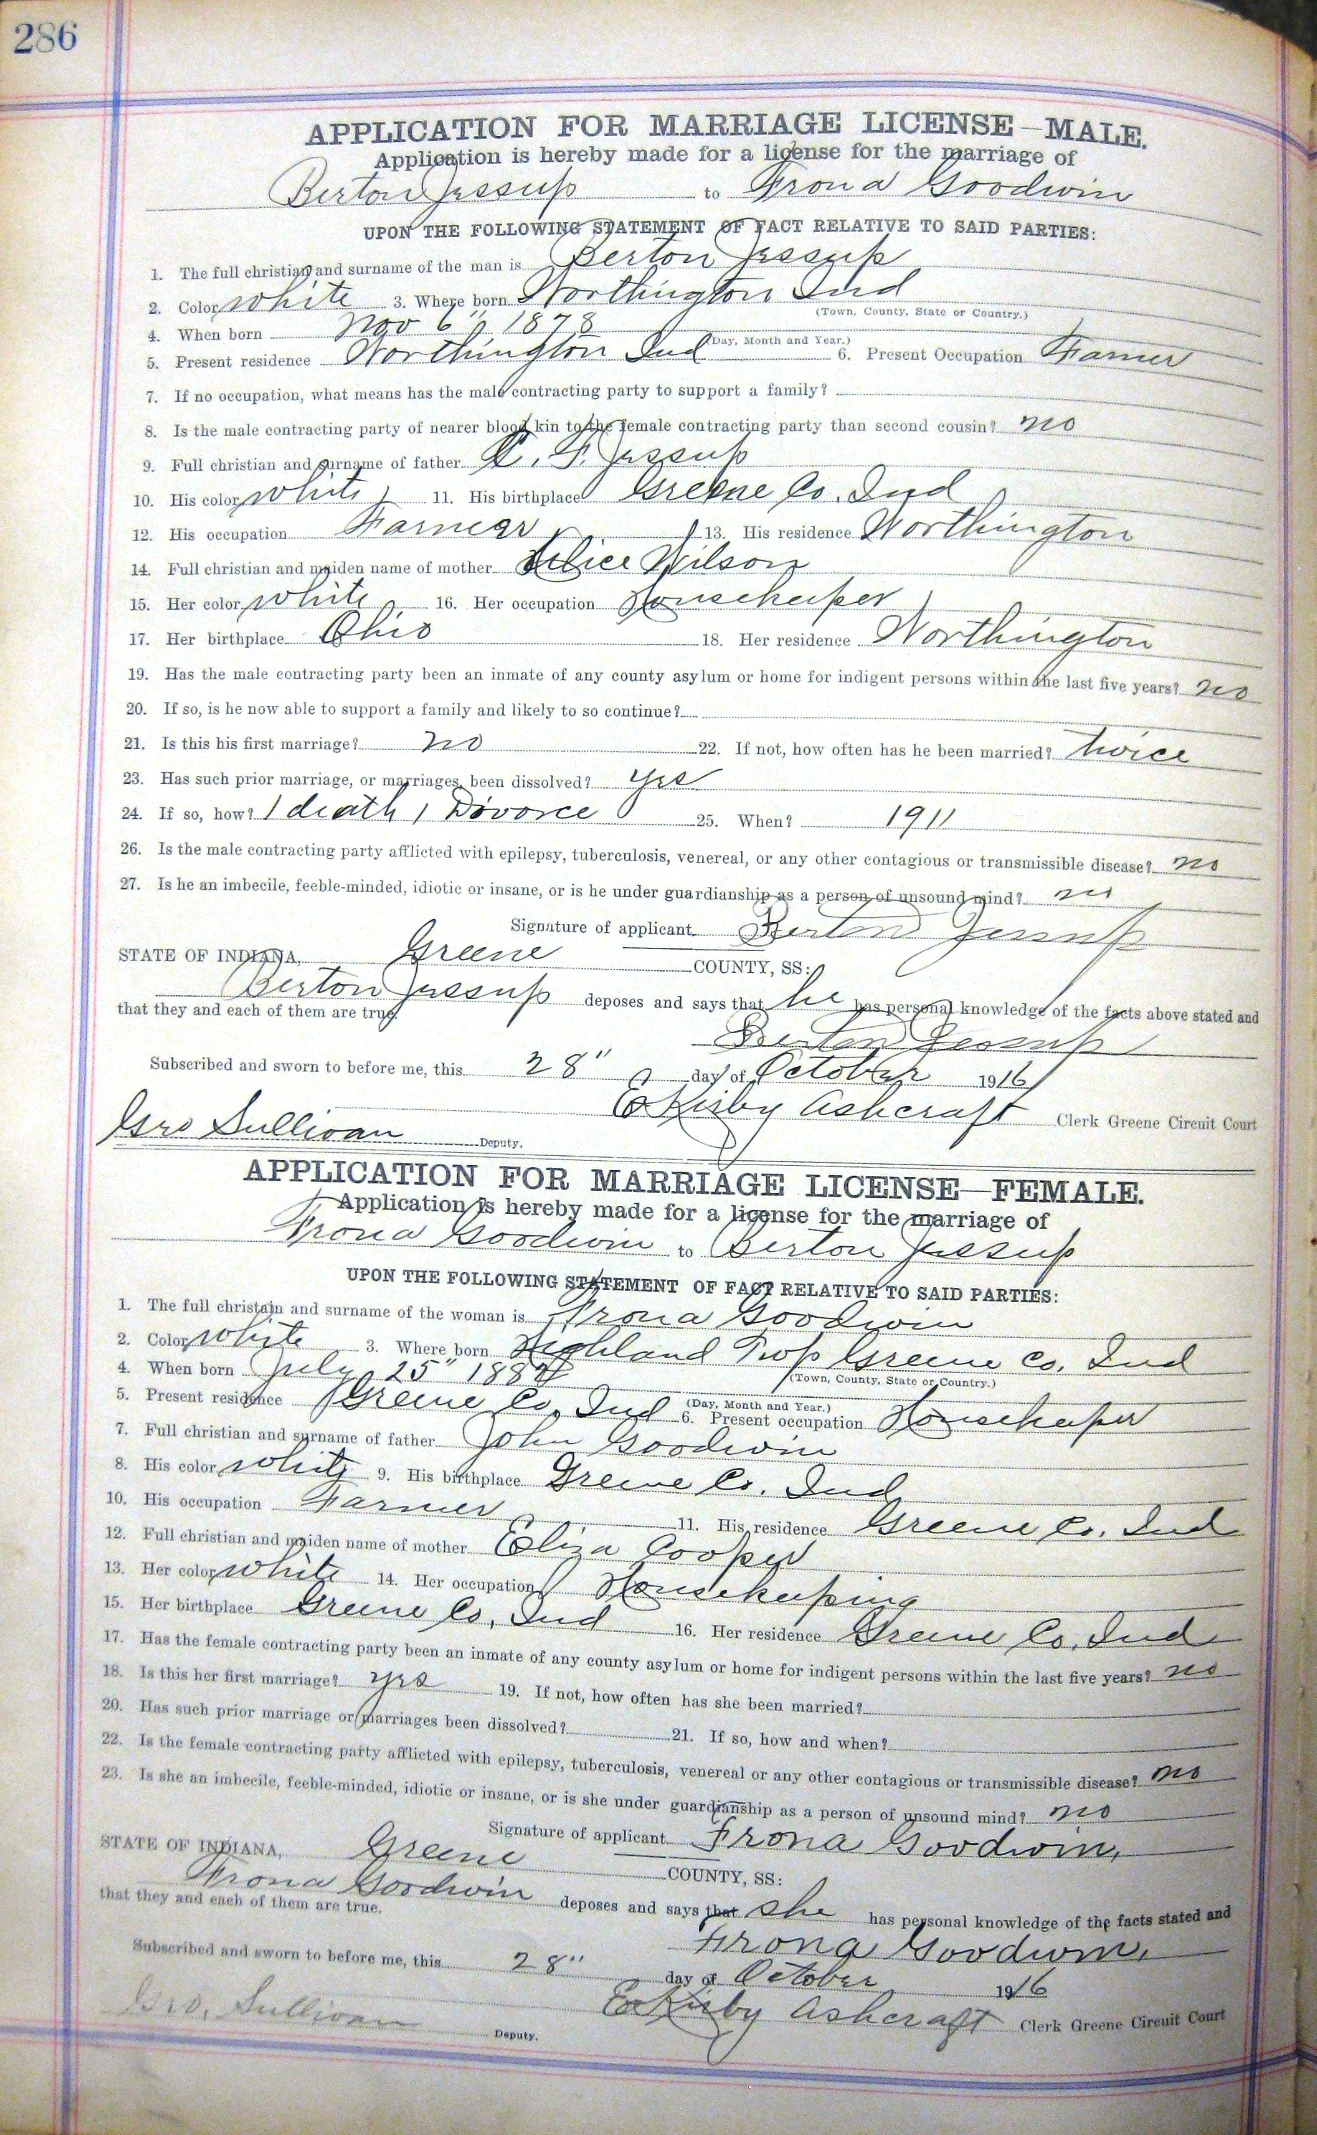 286
APPLICATION FOR MARRIAGE LICENSE—MALE.
Application is hereby made for a license for the marriage of
Berton Jessup to Frona Goodwin
UPON THE FOLLOWING STATEMENT OF FACT RELATIVE TO SAID PARTIES:
1. The full christian and surname of the man is Berton Jessup
2. Color white 3. Where born Worthington Ind
(Town, County, State or Country.)
4. When born Nov 6" 1878
(Day, Month and Year.)
5. Present residence Worthington Ind 6. Present Occupation Farmer
7. If no occupation, what means has the male contracting party to support a family?
8. Is the male contracting party of nearer blood kin to the female contracting party than second cousin? no
9. Full christian and surname of father C. F. Jessup
10. His color white 11. His birthplace Greene Co. Ind
12. His occupation Farmer 13. His residence Worthington
14. Full christian and maiden name of mother Alice Wilson
15. Her color white 16. Her occupation Housekeeper
17. Her birthplace Ohio 18. Her residence Worthington
19. Has the male contracting party been an inmate of any county asylum or home for indigent persons within the last five years? no
20. If so, is he now able to support a family and likely to so continue?
21. Is this his first marriage? no 22. If not, how often has he been married? twice
23. Has such prior marriage, or marriages, been dissolved? yes
24. If so, how? 1 death, 1 Divorce 25. When? 1911
26. Is the male contracting party afflicted with epilepsy, tuberculosis, venereal, or any other contagious or transmissible disease? no
27. Is he an imbecile, feeble-minded, idiotic or insane, or is he under guardianship as a person of unsound mind? no
Signature of applicant Berton Jessup
STATE OF INDIANA, Greene COUNTY, SS:
Berton Jessup deposes and says that he has personal knowledge of the facts above stated and
that they and each of them are true.
Berton Jessup
Subscribed and sworn to before me, this 28" day of October 1916
E Kirby Ashcraft Clerk Greene Circuit Court
Geo Sullivan Deputy.
APPLICATION FOR MARRIAGE LICENSE—FEMALE.
Application is hereby made for a license for the marriage of
Frona Goodwin to Berton Jessup
UPON THE FOLLOWING STATEMENT OF FACT RELATIVE TO SAID PARTIES:
1. The full christain and surname of the woman is Frona Goodwin
2. Color white 3. Where born Highland Twp Greene Co. Ind
(Town, County, State or Country.)
4. When born July 25" 1884
(Day, Month and Year.)
5. Present residence Greene Co. Ind 6. Present occupation Housekeeper
7. Full christian and surname of father John Goodwin
8. His color white 9. His birthplace Greene Co. Ind
10. His occupation Farmer 11. His residence Greene Co. Ind
12. Full christian and maiden name of mother Eliza Cooper
13. Her color white 14. Her occupation Housekeeping
15. Her birthplace Greene Co. Ind 16. Her residence Greene Co. Ind
17. Has the female contracting party been an inmate of any county asylum or home for indigent persons within the last five years? no
18. Is this her first marriage? yes 19. If not, how often has she been married?
20. Has such prior marriage or marriages been dissolved? 21. If so, how and when?
22. Is the female contracting party afflicted with epilepsy, tuberculosis, venereal or any other contagious or transmissible disease? no
23. Is she an imbecile, feeble-minded, idiotic or insane, or is she under guardianship as a person of unsound mind? no
Signature of applicant Frona Goodwin,
STATE OF INDIANA, Greene COUNTY, SS:
Frona Goodwin deposes and says that she has personal knowledge of the facts stated and
that they and each of them are true.
Frona Goodwin,
Subscribed and sworn to before me, this 28" day of October 1916
E Kirby Ashcraft Clerk Greene Circuit Court
Geo. Sullivan Deputy.